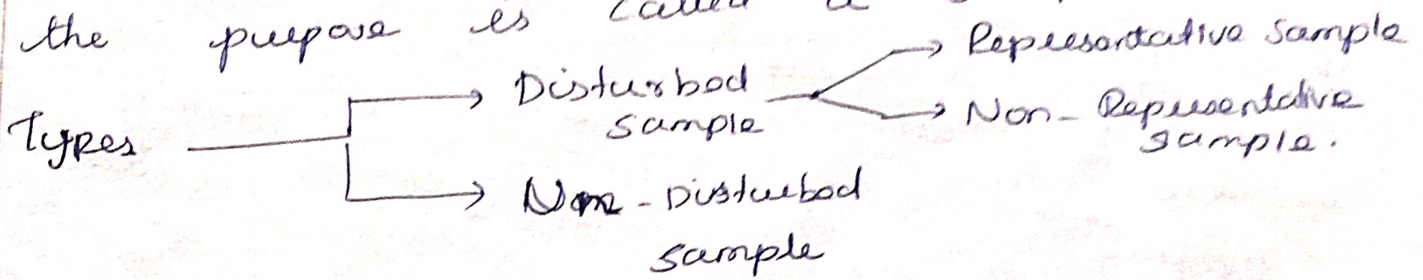 the purpose is called a
Types
Disturbed
sample
Representative sample
Non-Representative
sample.
Non-Disturbed
sample